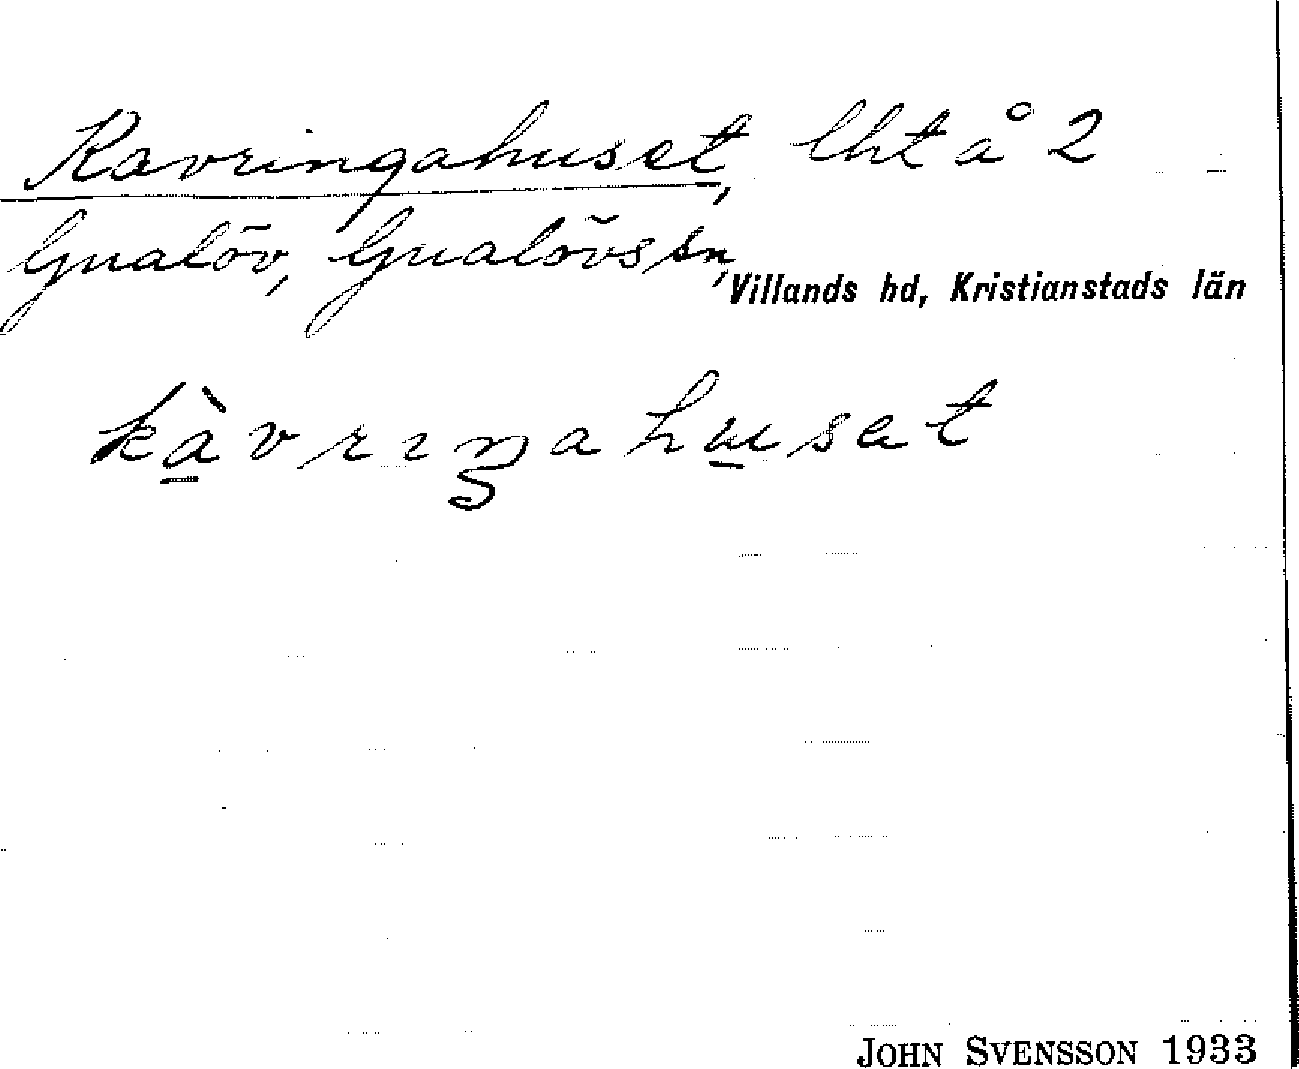 Kavringahuset, lht å 2
Gualöv, Gualövs sn,
Villands hd, Kristianstads län
kàvrıŋahusat
JOHN SVENSSON 1933